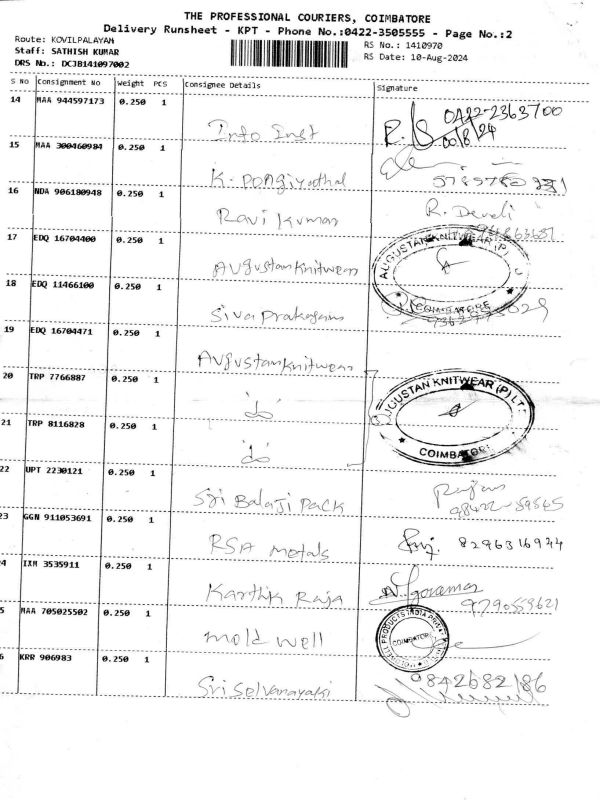 THE PROFESSIONAL COURIERS, COIMBATORE
Delivery Runsheet - KPT - Phone No.:0422-3505555 - Page No.:2
Route: KOVILPALAYAM
RS No.: 1410970
Staff: SATHISH KUMAR
RS Date: 10-Aug-2024
DRS No.: DCJB141097002
S No Consignment No Weight PCS Consignee Details Signature
14 MAA 944597173 0.250 1 Info Inst 0422-2363700
15 MAA 300460984 0.250 1
16 NDA 906180948 0.250 1 Ravi Kumar R. Devi
17 EDQ 16704400 0.250 1 Augustan Knitwear
AUGUSTAN KNITWEAR (P)
COIMBATORE
18 EDQ 11466100 0.250 1 Siva Prakasam
19 EDQ 16704471 0.250 1 Augustan Knitwear
20 TRP 7766887 0.250 1 do
AUGUSTAN KNITWEAR (P) LT
COIMBATORE
21 TRP 8116828 0.250 1 do
22 UPT 2230121 0.250 1 Sri Balaji Pack
23 GGN 911053691 0.250 1 RSA metals 8296316944
24 IXM 3535911 0.250 1 Karthik Raja 9790559621
25 MAA 705025502 0.250 1 mold well
PRODUCTS INDIA PRIVATE
COIMBATORE
26 KRR 906983 0.250 1 Sri Selvanayaki 9842682186